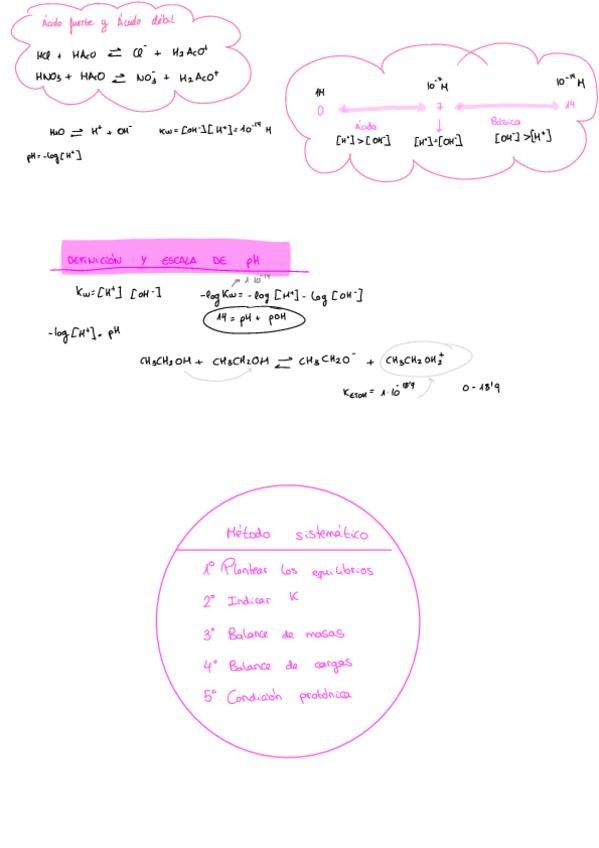 Ácido fuerte y Ácido débil
HCl + HAcO ⇌ Cl⁻ + H₂AcO⁺
HNO₃ + HAcO ⇌ NO₃⁻ + H₂AcO⁺
H₂O ⇌ H⁺ + OH⁻ Kw = [OH⁻][H⁺] = 10⁻¹⁴ M
pH = -log[H⁺]
1M 10⁻⁷M 10⁻¹⁴ M
0 7 14
Ácida Básica
[H⁺] > [OH⁻] [H⁺] = [OH⁻] [OH⁻] > [H⁺]
DEFINICIÓN Y ESCALA DE pH
1·10⁻¹⁴
Kw = [H⁺] [OH⁻] -log Kw = -log [H⁺] - log [OH⁻]
14 = pH + pOH
-log [H⁺] = pH
CH₃CH₂OH + CH₃CH₂OH ⇌ CH₃CH₂O⁻ + CH₃CH₂OH₂⁺
K_EtOH = 1·10⁻¹⁸'⁹ 0 - 18'9
Método sistemático
1º Plantear los equilibrios
2º Indicar K
3º Balance de masas
4º Balance de cargas
5º Condición protónica